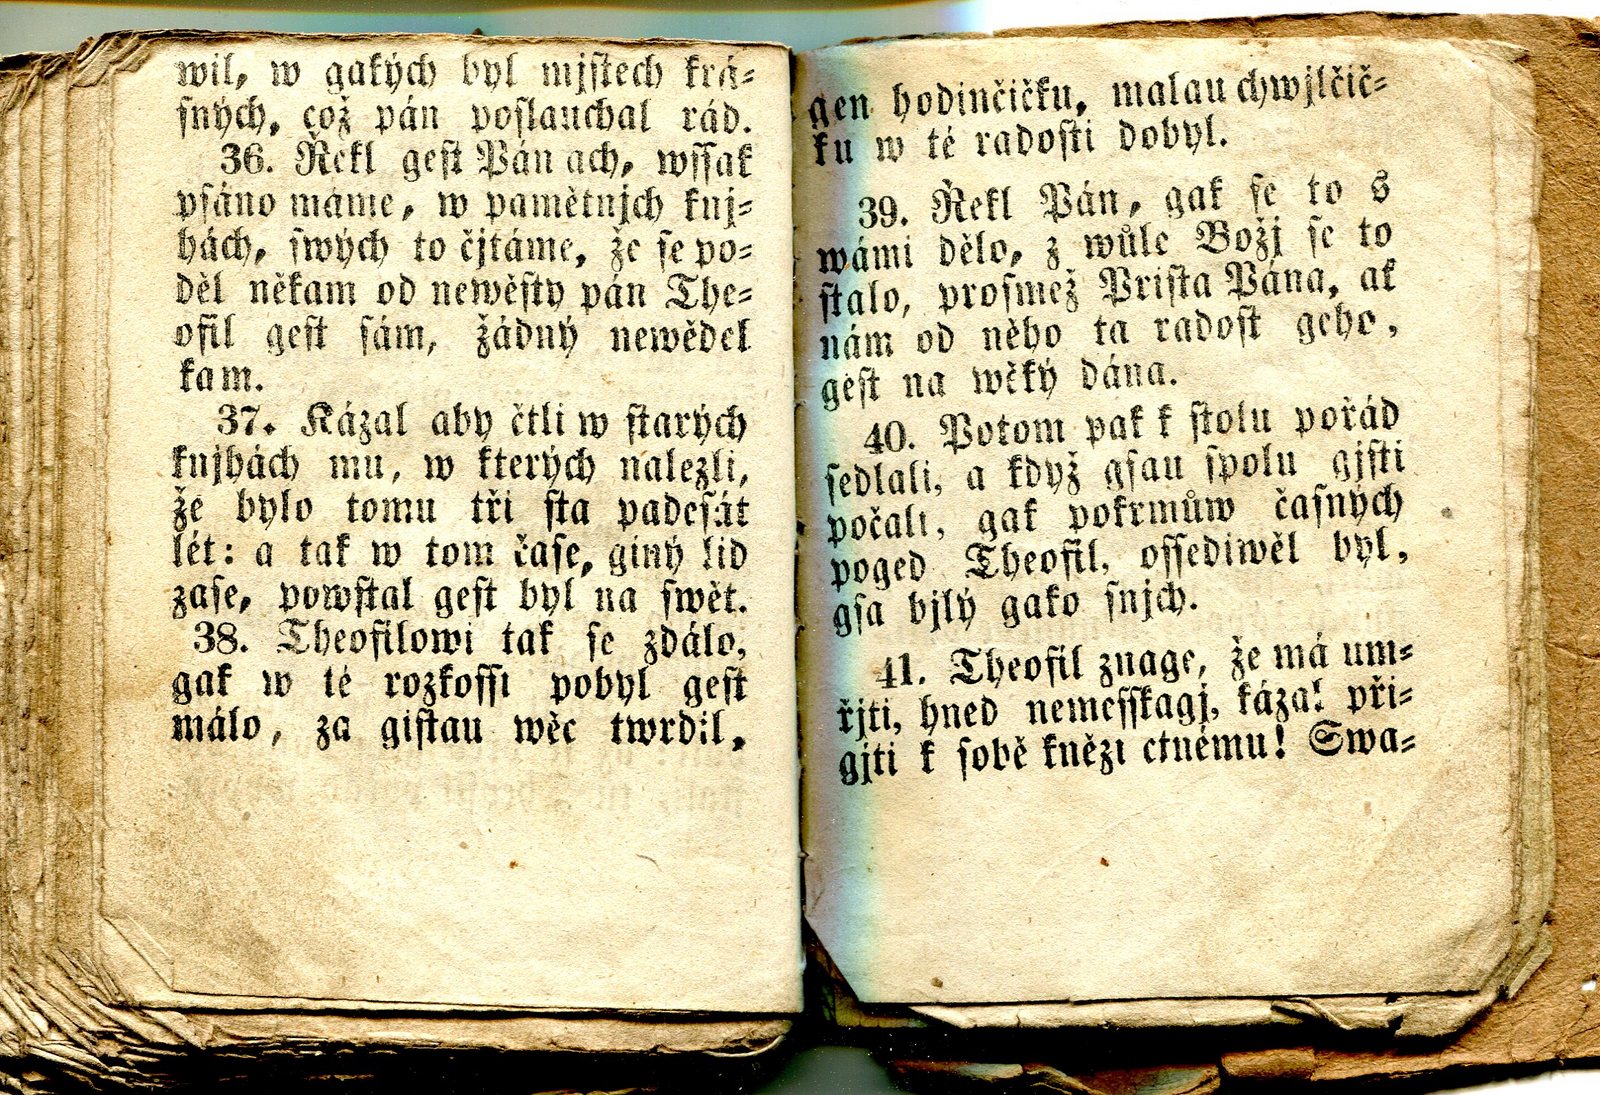 wil, w gakých byl mjſtech krá⸗
ſných, což pán poſlauchal rád.
36. Řekl geſt Pán ach, wſſak
pſáno máme, w pamětnjch knj⸗
hách, ſwých to čjtáme, že ſe po⸗
děl někam od newěſty pán The⸗
ofil geſt ſám, žádný newěděl
kam.
37. Kázal aby čtli w ſtarých
knjhách mu, w kterých nalezli,
že bylo tomu tři ſta padeſát
lét: a tak w tom čaſe, giný lid
zaſe, powſtal geſt byl na ſwět.
38. Theofilowi tak ſe zdálo,
gak w té rozkoſſi pobyl geſt
málo, za giſtau wěc twrdil,
gen hodinčičku, malau chwjlčič⸗
ku w té radoſti dobyl.
39. Řekl Pán, gak ſe to s
wámi dělo, z wůle Božj ſe to
ſtalo, proſmež Kriſta Pána, ať
nám od něho ta radoſt geho,
geſt na wěky dána.
40. Potom pak k ſtolu pořád
ſedlali, a když gſau ſpolu gjſti
počali, gak pokrmůw čaſných
poged Theofil, oſſediwěl byl,
gſa bjlý gako ſnjch.
41. Theofil znage, že má um⸗
řjti, hned nemeſſkagj, kázal při⸗
gjti k ſobě knězi ctnému! Swa⸗